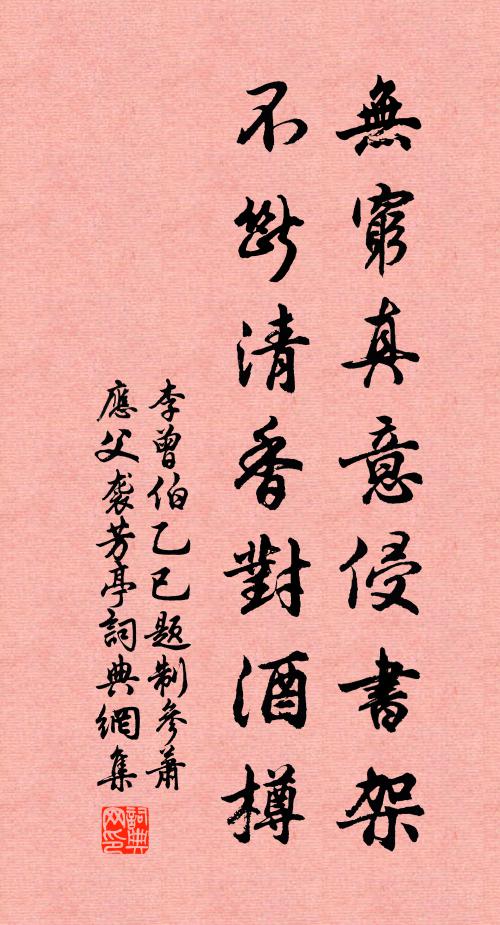 無窮真意侵書架
不斷清香對酒樽
李曾伯乙巳題制參蕭
應父袭芳亭詞典網集
詞典网印